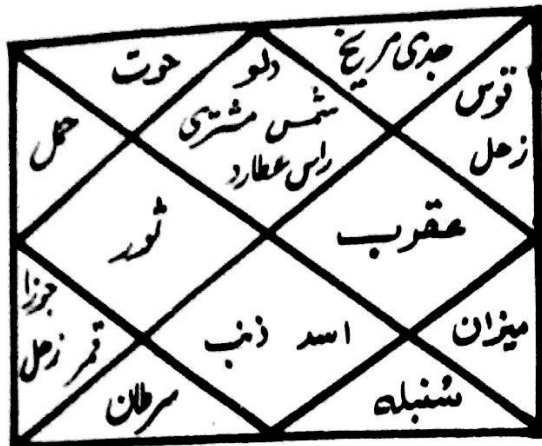 جدی مریخ
دلو
شمس مشتری
راس عطارد
حوت
قوس
زحل
حمل
ثور
عقرب
جوزا
قمر زحل
اسد ذنب
میزان
سرطان
سُنبلہ